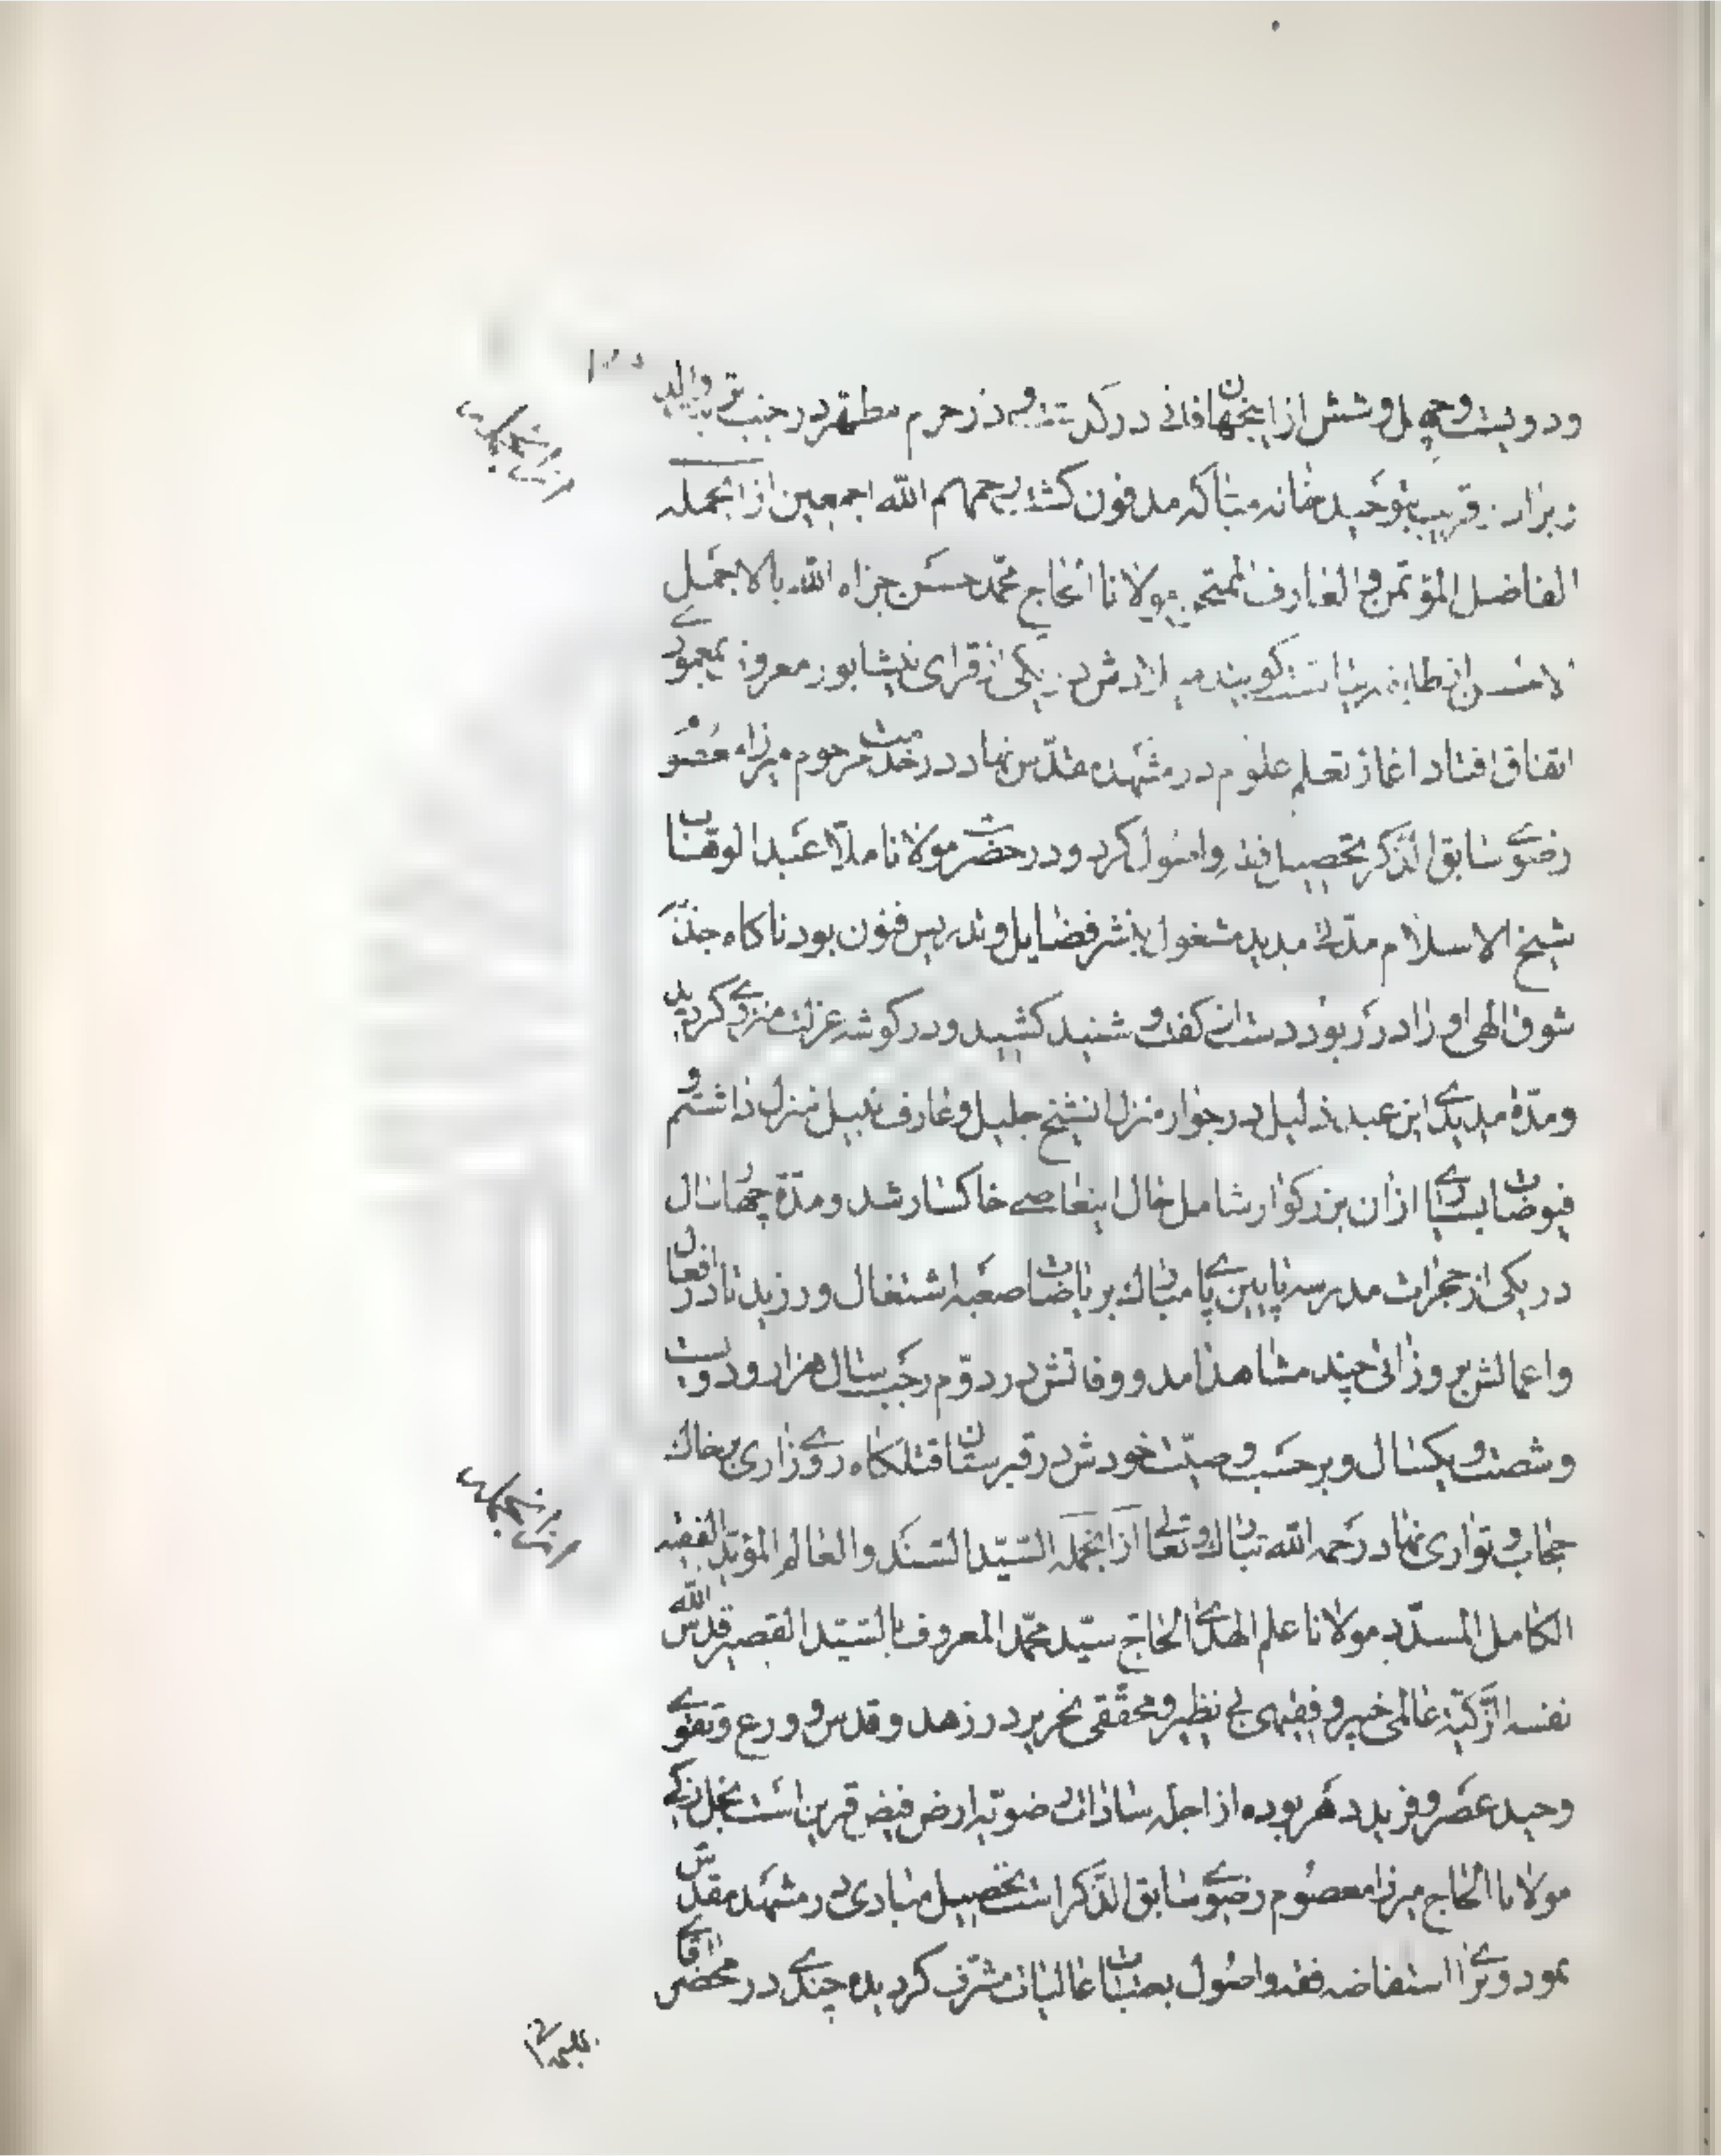 ودویست و چهل و شش از اینجهان فانی درگذشته و در حرم مطهر در جنب والد
قریب بتوحید خانه مبارکه مدفون گشته رحمهم الله اجمعین ازانجمله
الفاضل المؤتمن و العارف الممتحن مولانا الحاج محمد حسن جزاه الله بالاجمل
در یکی از قرای نیشابور معروف بمعموری
اتفاق افتاد اغاز تعلم علوم در مشهد مقدس نهاد در خدمت مرحوم میرزا معصوم
رضوی سابق الذکر تحصیل فقه و اصول کرد و در حضرت مولانا ملا عبد الوهاب
شیخ الاسلام مدتی مدید مشغول بنشر فضایل و تدریس فنون بود ناکاه جذبه
شوق الهی او را در ربود دست از کفت و شنید کشید و در کوشه عزلت منزوی کردید
ومدة مدیدی این عبد ذلیل در جوار منزل انشیخ جلیل و عارف نبیل منزل داشتم و
فیوضات بسیاری از آن بزرکوار شامل حال اینعاصی خاکسار شد و مدة چهار سال
در یکی از حجرات مدرسه پایین پای مبارک بریاضات صعبه اشتغال ورزید تا در افعال
واعمالش بروزاتی چند مشاهد امد و وفاتش در دوم رجب سال هزار و دویست
و شصت و یکسال و بر حسب وصیت خودش در قبرستان قتلکاه روی زاری بخاک
حجاب و تواری نهاد رحمه الله تبارک و تعالی ازانجمله السید السند و العالم المؤید الفقیه
الکامل المسدد مولانا علم الهدی الحاج سید محمد المعروف بالسید القصیر قدس الله
نفسه الزکیة عالمی خبیر و فقیهی بی نظیر و محققی نحریر در زهد و قدس و ورع و تقوی
وحید عصر و فرید دهر بوده از اجله سادات رضویه ارض فیض قرین است نجل زکی
مولانا الحاج میرزا معصوم رضوی سابق الذکر است تحصیل مبادی در مشهد مقدس
نمود و برای استفاضه فقه و اصول بعتبات عالیات مشرف کردیده چندی در محضر اقای
ازانجمله
ازانجمله